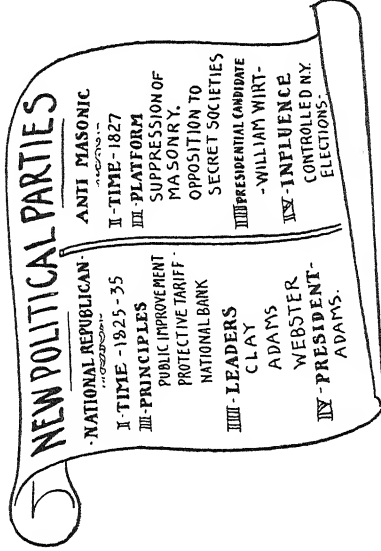 NEW POLITICAL PARTIES
-NATIONAL REPUBLICAN-
II-TIME-1825-35
III-PRINCIPLES
PUBLIC IMPROVEMENT
PROTECTIVE TARIFF-
NATIONAL BANK
IIII-LEADERS
CLAY
ADAMS
WEBSTER
IV-PRESIDENT-
ADAMS.
ANTI MASONIC
II-TIME-1827
III-PLATFORM
SUPPRESSION OF
MASONRY.
OPPOSITION TO
SECRET SOCIETIES
IIII PRESIDENTIAL CANDIDATE
-WILLIAM WIRT-
IV-INFLUENCE
CONTROLLED N.Y.
ELECTIONS-